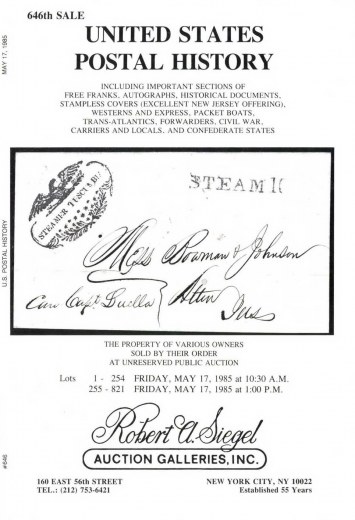 646th SALE
UNITED STATES
POSTAL HISTORY
INCLUDING IMPORTANT SECTIONS OF
FREE FRANKS, AUTOGRAPHS, HISTORICAL DOCUMENTS,
STAMPLESS COVERS (EXCELLENT NEW JERSEY OFFERING),
WESTERNS AND EXPRESS, PACKET BOATS,
TRANS-ATLANTICS, FORWARDERS, CIVIL WAR,
CARRIERS AND LOCALS, AND CONFEDERATE STATES
STEAMER
STEAM 10
Mess Bowman & Johnson
Alton
Care Capt
THE PROPERTY OF VARIOUS OWNERS
SOLD BY THEIR ORDER
AT UNRESERVED PUBLIC AUCTION
Lots 1 - 254 FRIDAY, MAY 17, 1985 at 10:30 A.M.
255 - 821 FRIDAY, MAY 17, 1985 at 1:00 P.M.
Robert A. Siegel
AUCTION GALLERIES, INC.
160 EAST 56th STREET
TEL.: (212) 753-6421
NEW YORK CITY, NY 10022
Established 55 Years
MAY 17, 1985
U.S. POSTAL HISTORY
#646